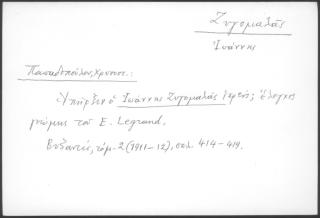 Ζυγομαλᾶς
Ἰωάννης
Παπαδόπουλος, Χρυσοστ.:
Ὑπῆρξεν ὁ Ἰωάννης Ζυγομαλᾶς ἱερεύς; ἔλεγχος
γνώμης τοῦ E. Legrand.
Βυζαντίς, τόμ. 2 (1911-12), σελ. 414-419.